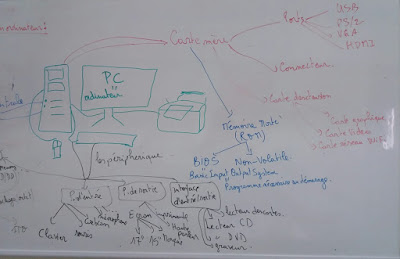 ordinateur:
Carte mère
Ports
USB
PS/2
VGA
HDMI
PC
ordinateur
Connecteur
Carte d'extension
Carte graphique
Carte Vidéo
Carte réseau
Mémoire Morte
(ROM)
BIOS
Non-Volatile
Basic Input Output System
Programme nécessaire au démarrage.
Les périphérique
P.d'entrée
P.de sortie
d'entrée/sortie
Clavier
souris
webcam
Ecran
17"
15"
imprimante
Haut
parleur
lecteur de cartes.
Lecteur CD
DVD
graveur